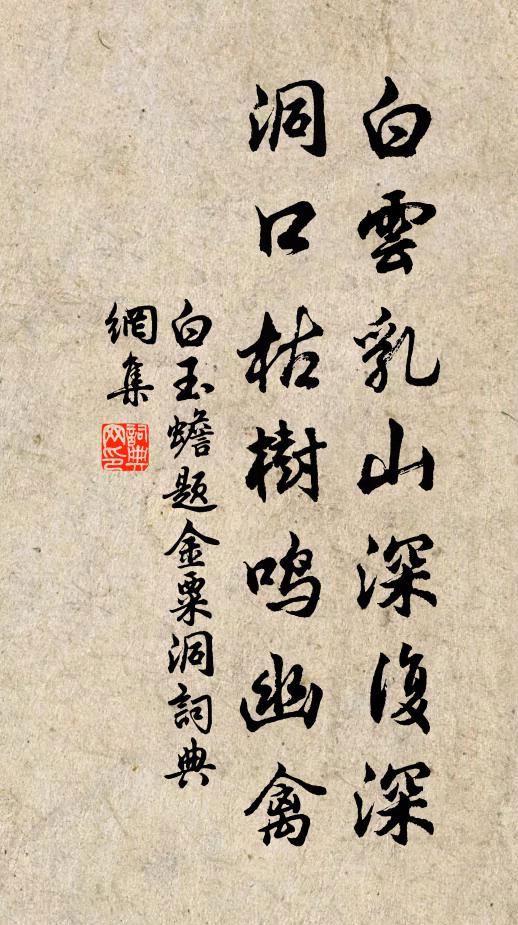 白雲乳山深復深
洞口枯樹鳴幽禽
白玉蟾題金粟洞詞典
網集
詞典
网印